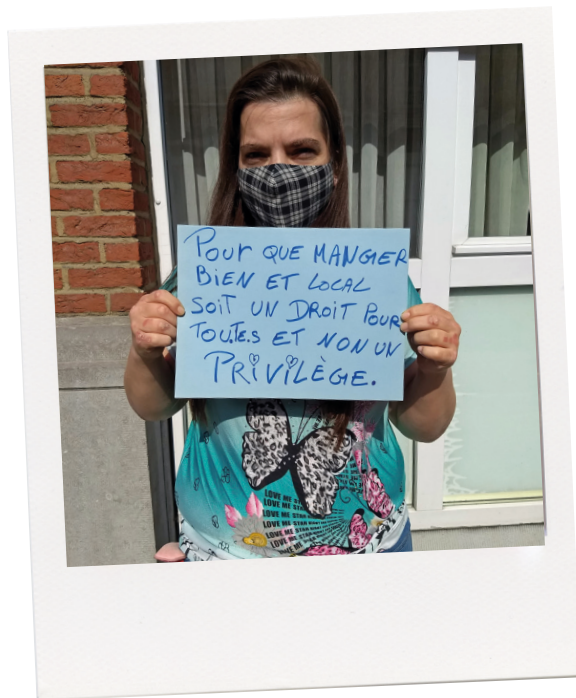 Pour QUE MANGER
BiEN ET LOCAL
SOiT UN DROiT POUR
TOUTE.S ET NON UN
PRiViLÈGE.
LOVE ME STAR
LOVE ME STAR
LOVE ME STAR
LOVE ME STAR
LOVE ME STAR
LOVE ME STAR